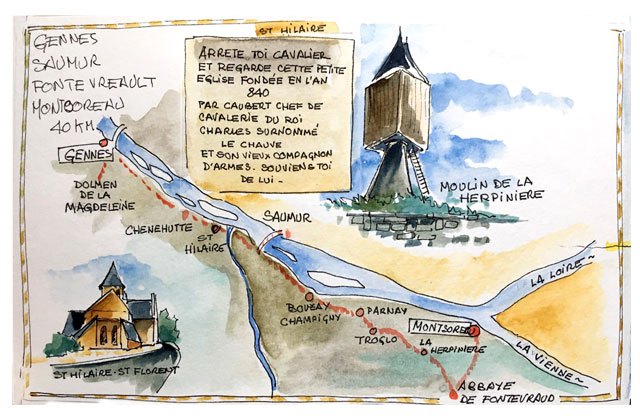 GENNES
SAUMUR
FONTEVREAULT
MONTSOREAU
40 KM
ST HILAIRE
ARRETE TOI CAVALIER
ET REGARDE CETTE PETITE
EGLISE FONDÉE EN L'AN
840
PAR CAUBERT CHEF DE
CAVALERIE DU ROI
CHARLES SURNOMMÉ
LE CHAUVE
ET SON VIEUX COMPAGNON
D'ARMES. SOUVIENS TOI
DE LUI -
MOULIN DE LA
HERPINIERE
GENNES
DOLMEN
DE LA
MAGDELEINE
CHENEHUTTE
ST
HILAIRE
SAUMUR
BOUZAY
CHAMPIGNY
PARNAY
TROGLO
MONTSOREA
LA
HERPINIERE
LA LOIRE~
LA VIENNE~
ABBAYE
DE FONTEVRAUD
ST HILAIRE-ST FLORENT